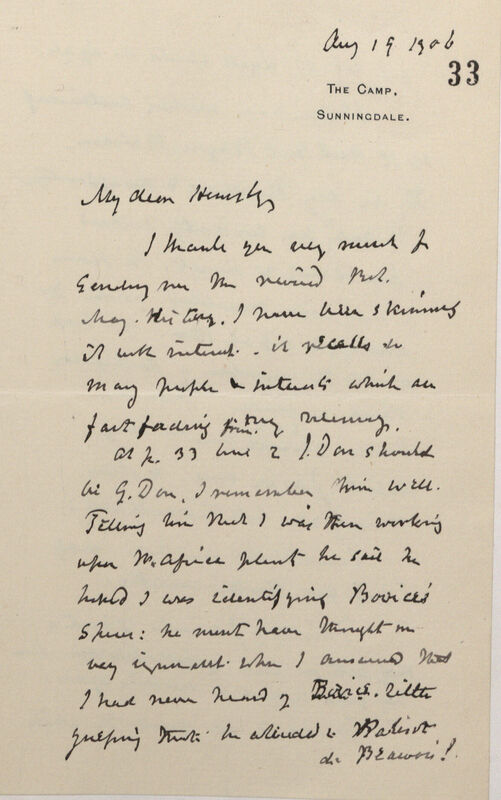 Aug 19 1906
33
THE CAMP,
SUNNINGDALE.
My dear Hemsley,
I thank you very much for
sending me the revised Bot.
Mag. History. I have been skimming
it with interest. it recalls so
many people & interests which are
fast fading from my memory.
At p. 33 line 2 J. Don should
be G. Don, I remember him well.
Telling him that I was then working
upon W. Africa plants he said he
hoped I was identifying Bovice's
Species: he must have thought me
very ignorant when I answered that
I had never heard of Bovice. little
guessing that he alluded to Palisot
de Beauvois!